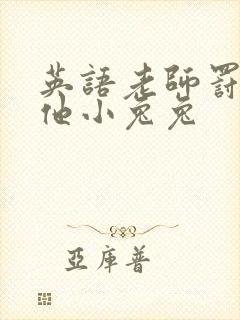 英語老師罰
他小兔兔
亞庫普